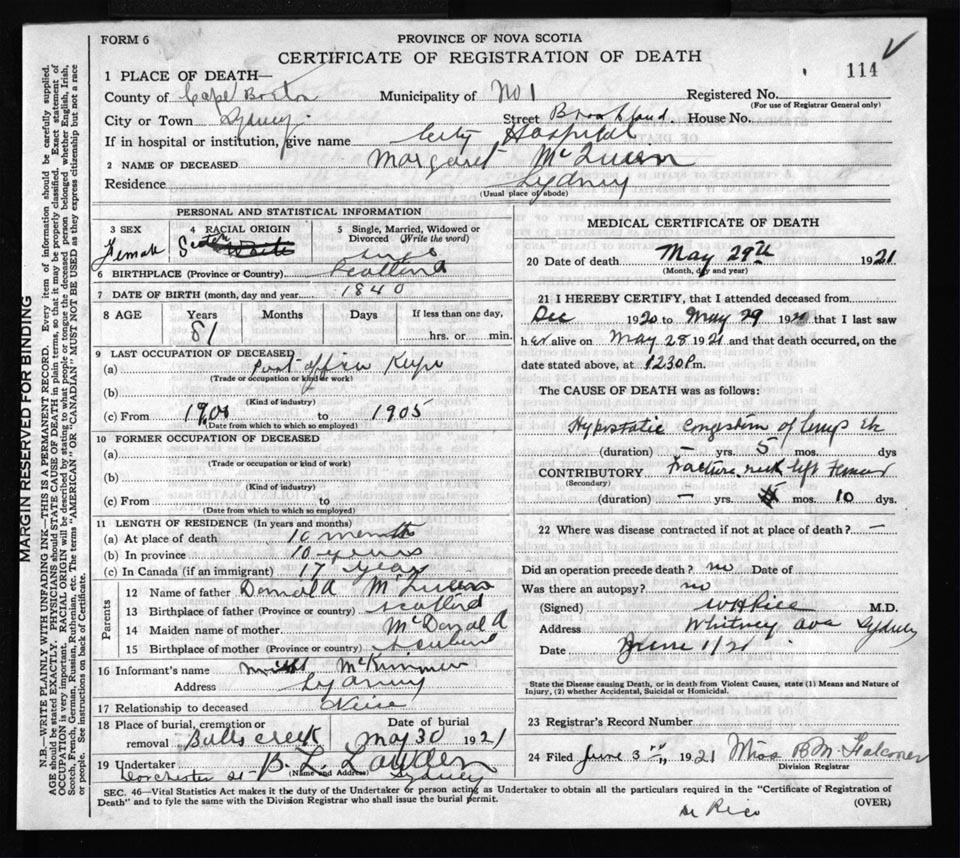 FORM 6
PROVINCE OF NOVA SCOTIA
CERTIFICATE OF REGISTRATION OF DEATH
114
1 PLACE OF DEATH—
County of Cape Breton Municipality of No 1 Registered No.
(For use of Registrar General only)
City or Town Sydney Street House No.
If in hospital or institution, give name City Hospital
2 NAME OF DECEASED Margaret
Residence Sydney
(Usual place of abode)
PERSONAL AND STATISTICAL INFORMATION
3 SEX Female
4 RACIAL ORIGIN
5 Single, Married, Widowed or Divorced (Write the word)
6 BIRTHPLACE (Province or Country) Scotland
7 DATE OF BIRTH (month, day and year) 1840
8 AGE Years Months Days If less than one day,
81 hrs. or min.
9 LAST OCCUPATION OF DECEASED
(a) Post office
(Trade or occupation or kind of work)
(b)
(Kind of industry)
(c) From to 1905
(Date from which to which so employed)
10 FORMER OCCUPATION OF DECEASED
(a)
(Trade or occupation or kind of work)
(b)
(Kind of industry)
(c) From to
(Date from which to which so employed)
11 LENGTH OF RESIDENCE (In years and months)
(a) At place of death 10 months
(b) In province 10 years
(c) In Canada (if an immigrant) 17 years
Parents
12 Name of father Donald
13 Birthplace of father (Province or country) Scotland
14 Maiden name of mother McDonald
15 Birthplace of mother (Province or country)
16 Informant's name McKinnon
Address Sydney
17 Relationship to deceased Neice
18 Place of burial, cremation or removal Balls Creek
Date of burial May 30 1921
19 Undertaker
(Name and Address)
Dorchester St Sydney
MEDICAL CERTIFICATE OF DEATH
20 Date of death May 29th 1921
(Month, day and year)
21 I HEREBY CERTIFY, that I attended deceased from
Dec 1920 to May 29 192 that I last saw
her alive on May 28 1921 and that death occurred, on the
date stated above, at 1230 Pm.
The CAUSE OF DEATH was as follows:
Hypostatic Congestion of lungs
(duration) — yrs. 5 mos. dys
CONTRIBUTORY Fracture neck left Femur
(Secondary)
(duration) — yrs. mos. 10 dys.
22 Where was disease contracted if not at place of death? —
Did an operation precede death? no Date of
Was there an autopsy? no
(Signed) M.D.
Address Whitney Ave Sydney
Date June 1/21
State the Disease causing Death, or in death from Violent Causes, state (1) Means and Nature of
Injury, (2) whether Accidental, Suicidal or Homicidal.
23 Registrar's Record Number
24 Filed June 3rd 1921 Miss B M Falconer
Division Registrar
SEC. 46—Vital Statistics Act makes it the duty of the Undertaker or person acting as Undertaker to obtain all the particulars required in the "Certificate of Registration of
Death" and to fyle the same with the Division Registrar who shall issue the burial permit.
(OVER)
MARGIN RESERVED FOR BINDING
N.B.—WRITE PLAINLY WITH UNFADING INK—THIS IS A PERMANENT RECORD. Every item of information should be carefully supplied.
AGE should be stated EXACTLY. PHYSICIANS should STATE CAUSE OF DEATH in plain terms, so that it may be properly classified. Exact statement of
OCCUPATION is very important. RACIAL ORIGIN will be described by stating to what people or tongue the deceased person belonged whether English, Irish,
Scotch, French, German, Russian, Ruthenian, etc. The terms "AMERICAN" OR "CANADIAN" MUST NOT BE USED as they express citizenship but not a race
or people. See instructions on back of Certificate.